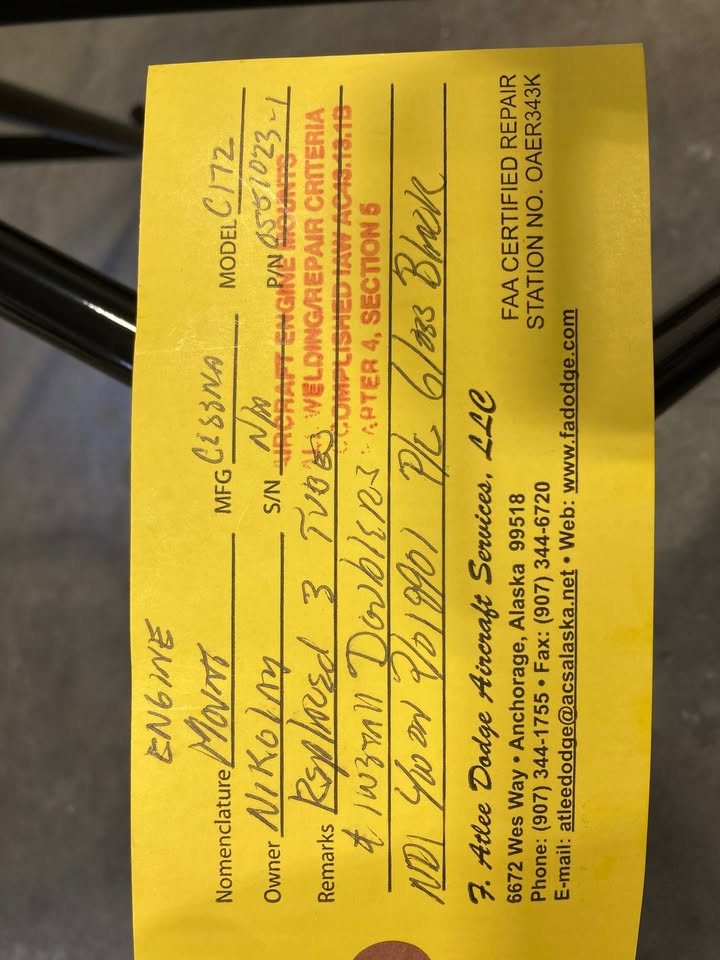 ENGINE
Nomenclature MOUNT MFG CESSNA MODEL C172
Owner NIKOLAY S/N N/A P/N 0551023-1
AIRCRAFT ENGINE MOUNTS
Remarks Replaced 3 TUBES
WELDING/REPAIR CRITERIA
& install Doublers
COMPLISHED IAW AC43.13.1B
APTER 4, SECTION 5
NDI P/C Gloss Black
F. Atlee Dodge Aircraft Services, LLC
6672 Wes Way • Anchorage, Alaska 99518
Phone: (907) 344-1755 • Fax: (907) 344-6720
E-mail: atleedodge@acsalaska.net • Web: www.fadodge.com
FAA CERTIFIED REPAIR
STATION NO. OAER343K